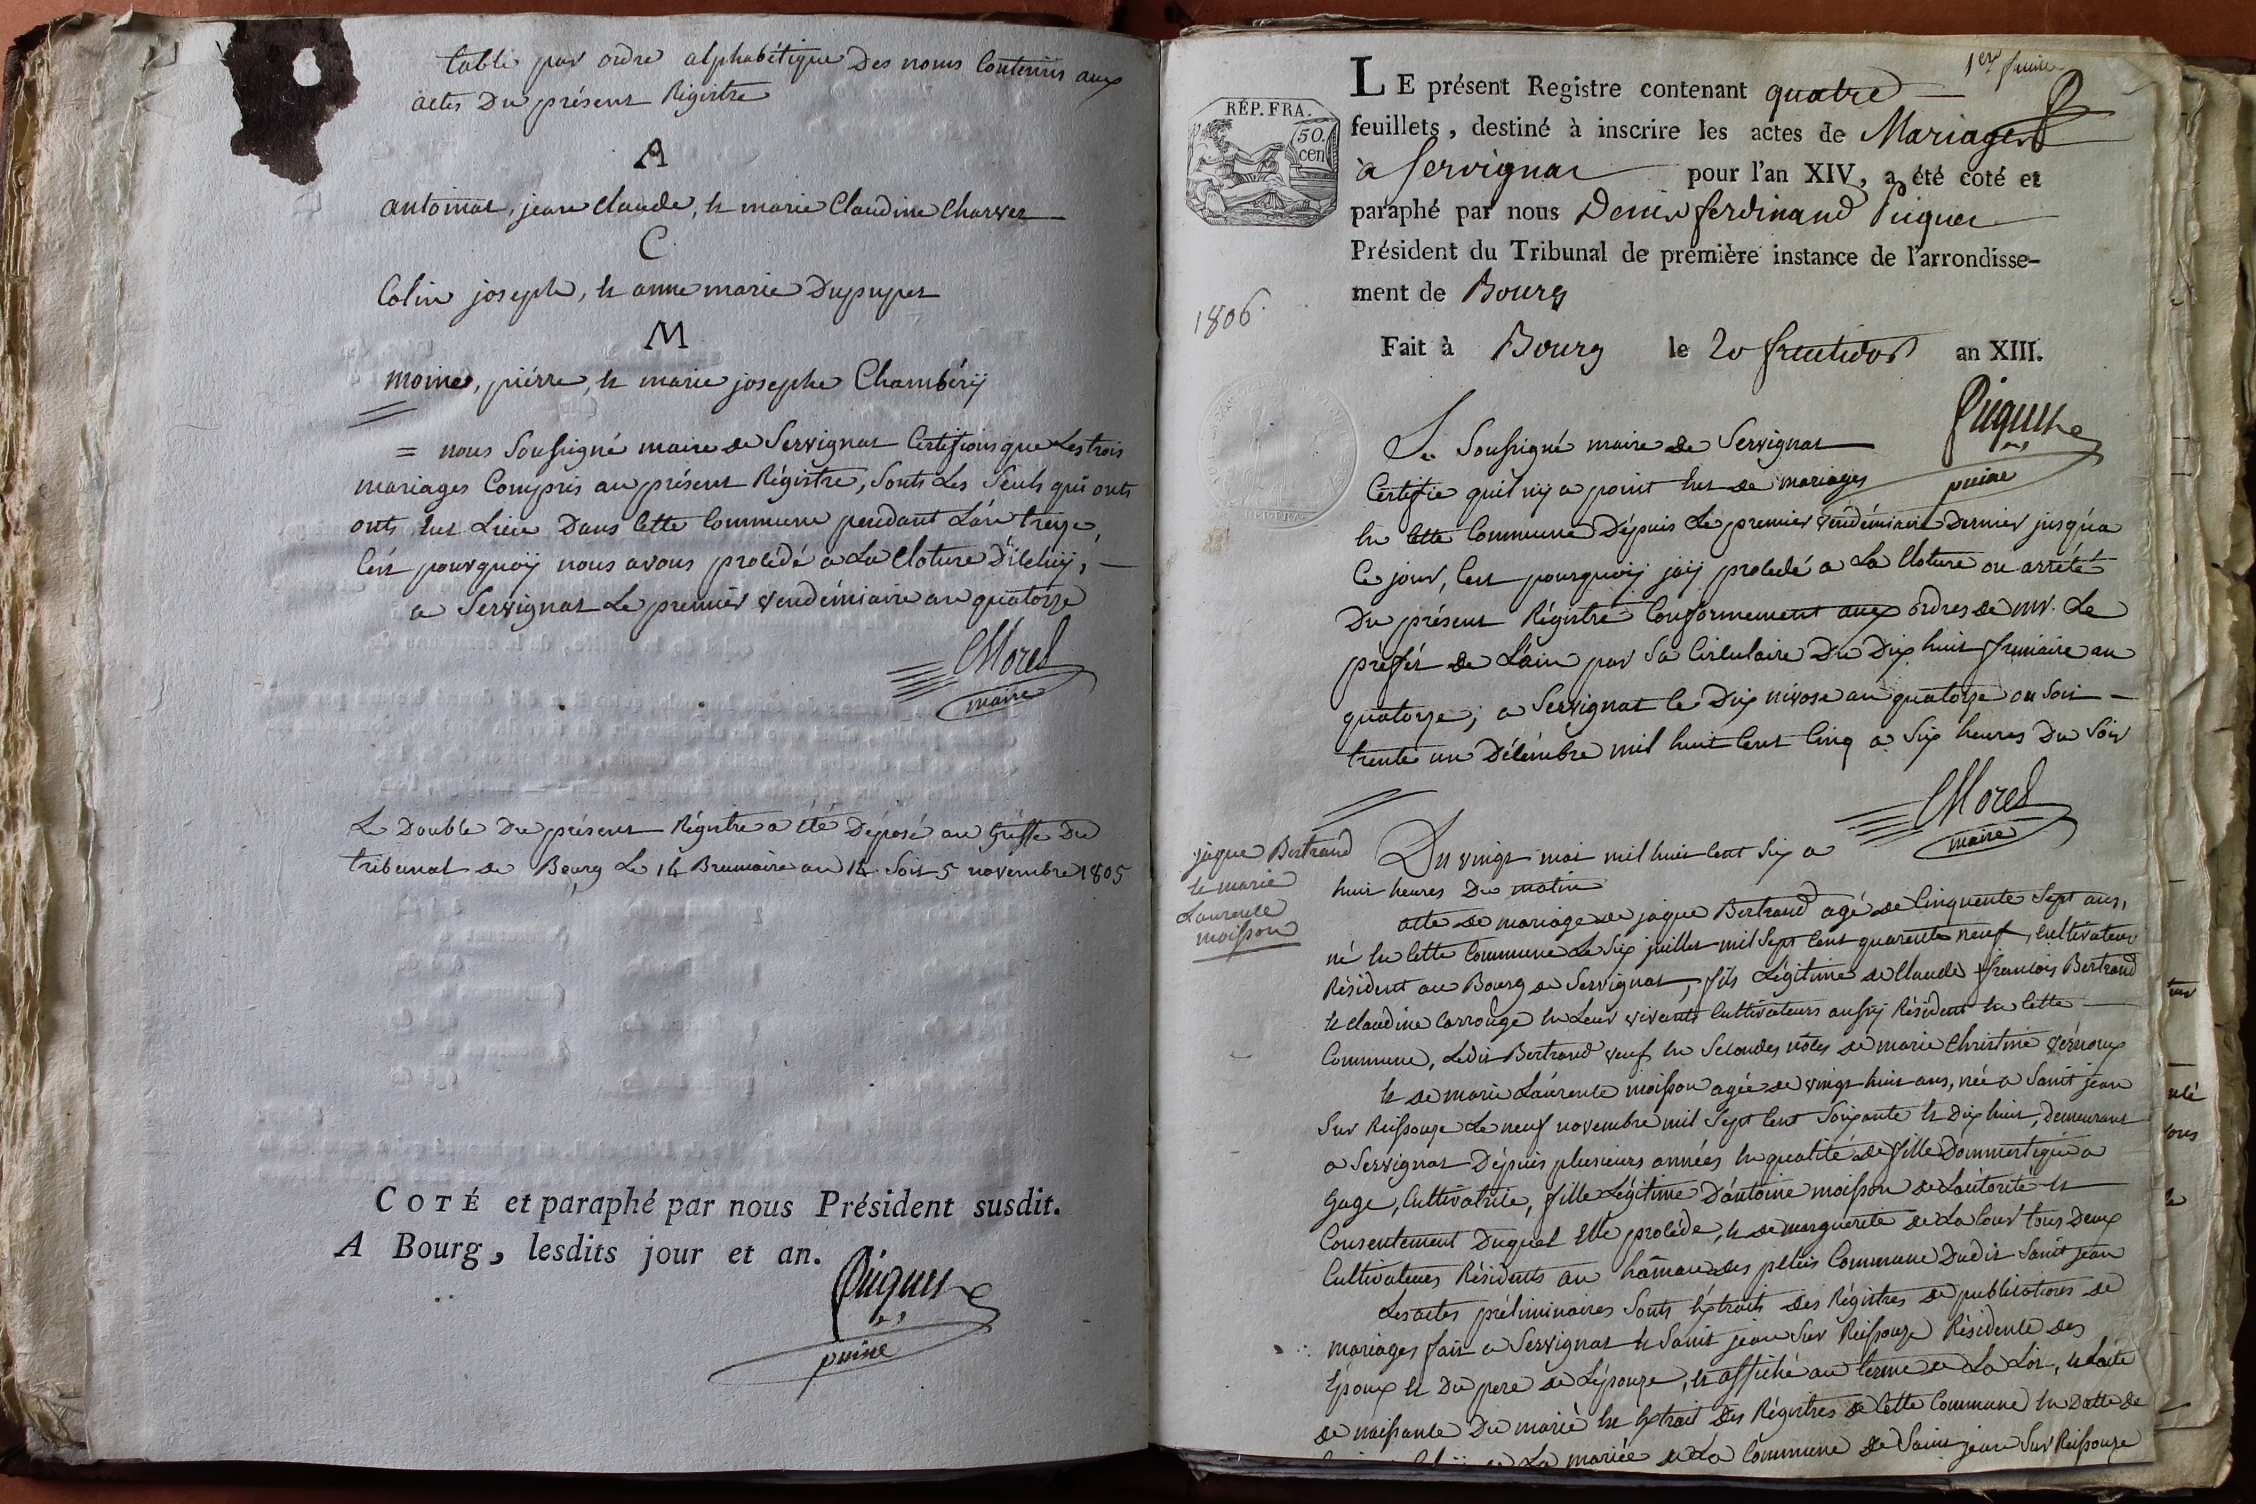 table par ordre alphabétique Des noms Contenus aux
actes Du présent Régistre
A
antoinat, jean claude, et marie Claudine Charvet
C
Colin joseph, et anne marie Dupupet
M
moine, piérre, et marie josephe Chambérÿ
= nous Soussigné maire de Servignat Certifions que Les trois
mariages Compris au présent Régistre, Sonts Les Seuls qui onts
onts eut Lieu Dans Cette Commune pendant L'an treize,
C'est pourquoÿ nous avons procédé a La Cloture D'iceluÿ,
a Servignat Le premier vendémiaire an quatorze
CMorel
maire
Le Double Du présent Régistre a été Déposé au Gréffe Du
tribunal de Bourg Le 14 Brumaire an 14 Soit 5 novembre 1805
COTÉ et paraphé par nous Président susdit.
A Bourg, lesdits jour et an.
Piquet
puiné
1er feuillet
LE présent Registre contenant quatre
RÉP. FRA.
50 cen
feuillets, destiné à inscrire les actes de Mariages
à Servignat pour l'an XIV, a été coté et
paraphé par nous Denis ferdinand Piquet
Président du Tribunal de première instance de l'arrondisse-
ment de Bourg
1806.
Fait à Bourg le 20 fructidor an XIII.
Piquet
puiné
Le Soussigné maire de Servignat
Certifie qu'il nÿ a point eut de mariages
en Cette Commune Dépuis Le premier vendémiaire Dernier jusqu'a
Ce jour, C'est pourquoÿ jaÿ procédé a La Cloture ou arrété
Du présent Régistre Conformement aux ordres de mr. Le
préfét de L'ain par Sa Circulaire Du Dix huit frimaire an
quatorze; a Servignat le Dix nivose an quatorze ou Soit
trente un Décémbre mil huit Cent Cinq a Six heures Du Soir
CMorel
maire
jaque Bertrand
et marie
Laurence
moisson
Du vingt mai mil huit Cent Six a
huit heures Du matin
acte de mariage de jaque Bertrand agé de Cinquente Sept ans,
né en Cette Commune Le Six juillet mil Sept Cent quarente neuf, Cultivateur
Résident au Bourg de Servignat, fils Légitime de Claude françois Bertrand
et Claudine Carrouge en Leur vivants Cultivateurs aussÿ Résident en Cette
Commune, Ledit Bertrand veuf en Secondes nôces de marie Christine vérnoux
et de marie Laurence moisson agée de vingt huit ans, née a Saint jean
Sur Reissouze Le neuf novembre mil Sept Cent Soixante et Dix huit, Demeurant
a Servignat Dépuis plusieurs années en qualité de fille Dommestique a
Gage, Cultivatrice, fille Légitime D'antoine moisson de L'autorité et
Consentement Duquel Elle procéde, et de marguerite de La Cour tous Deux
Cultivateurs Résidents au hâmau des Commune Dudit Saint jean
Les actes préliminaires Sonts Extraits des Régistres de publications de
mariages fait a Servignat et Saint jean Sur Reissouze Résidence des
Epoux et Du pere de L'épouze, et affiché au terme de La Loi, et L'acte
de naissance Du marié est Extrait Des Régistres de Cette Commune en Datte de
La mariée de La Commune de Saint jean Sur Reissouze